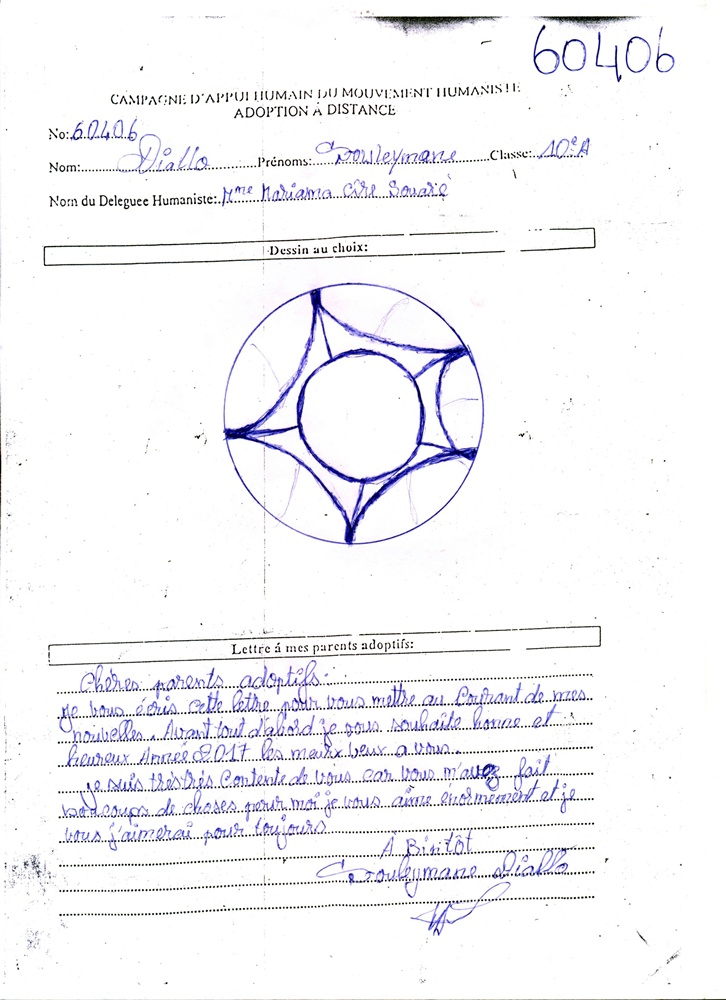 60406
CAMPAGNE D'APPUI HUMAIN DU MOUVEMENT HUMANISTE
ADOPTION À DISTANCE
No: 60406
Nom: Diallo Prénoms: Souleymane Classe: 10e A
Nom du Deleguee Humaniste: Mme Mariama Cire Souaré
Dessin au choix:
Lettre á mes parents adoptifs:
Chères parents adoptifs.
Je vous écris cette lettre pour vous mettre au Courant de mes
nouvelles. Avant tout d'abord je vous souhaite bonne et
heureux Année 2017 les meux veux a vous.
je suis très très Contente de vous car vous m'avez fait
baucoups de choses pour moi je vous aime énormement et je
vous j'aimerai pour toujours
À Bintôt
Souleymane Diallo